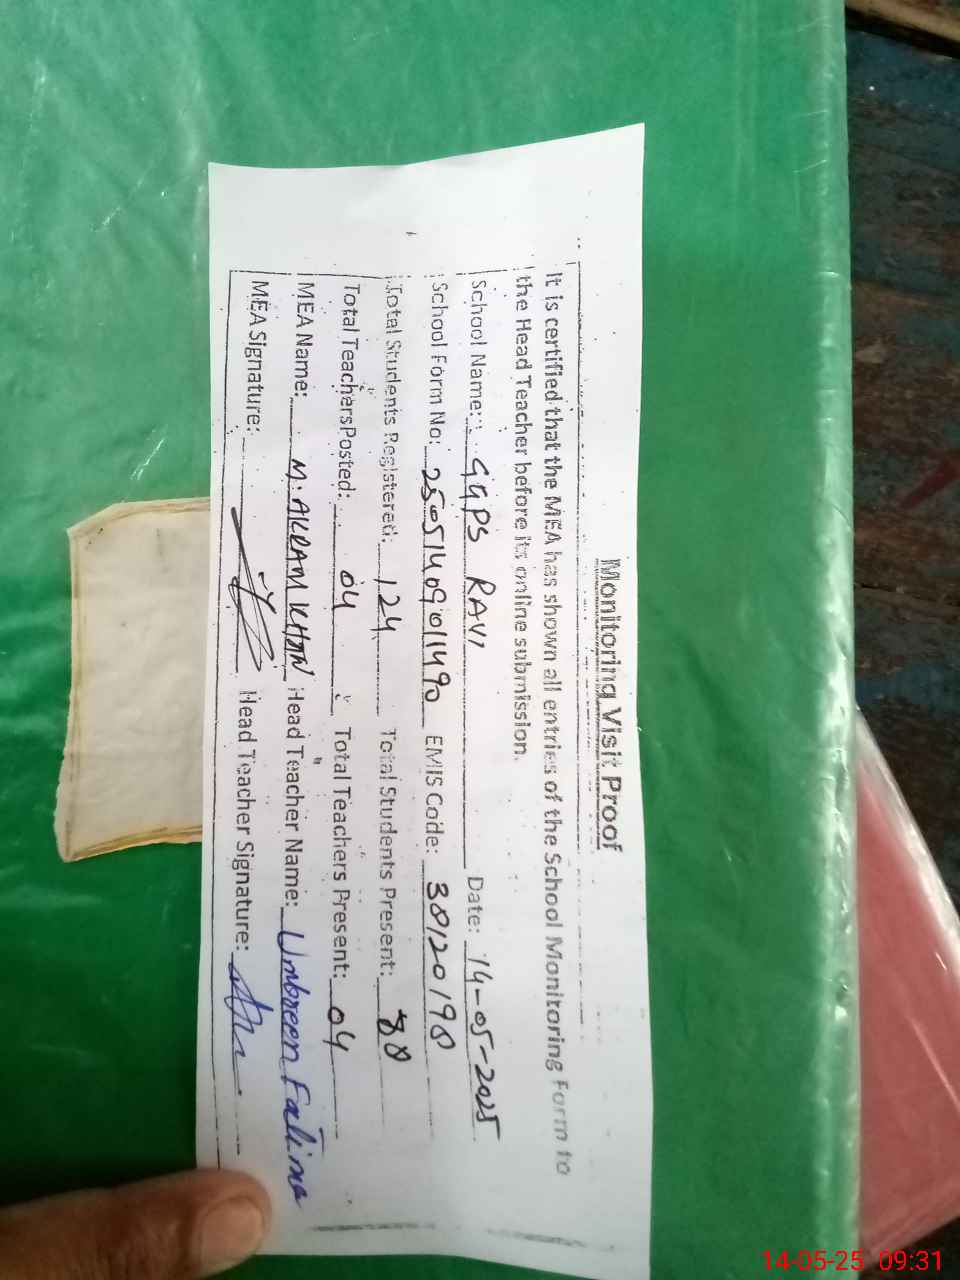 Monitoring Visit Proof
It is certified that the MEA has shown all entries of the School Monitoring Form to
the Head Teacher before its online submission.
School Name: GGPS RAVI Date: 14-05-2025
School Form No: 250514090101490 EMIS Code: 38120198
Total Students Registered: 124 Total Students Present: 80
Total Teachers Posted: 04 Total Teachers Present: 04
MEA Name: M. AKRAM KHAN Head Teacher Name: Umbreen Fatima
MEA Signature: Head Teacher Signature:
14-05-25 09:31